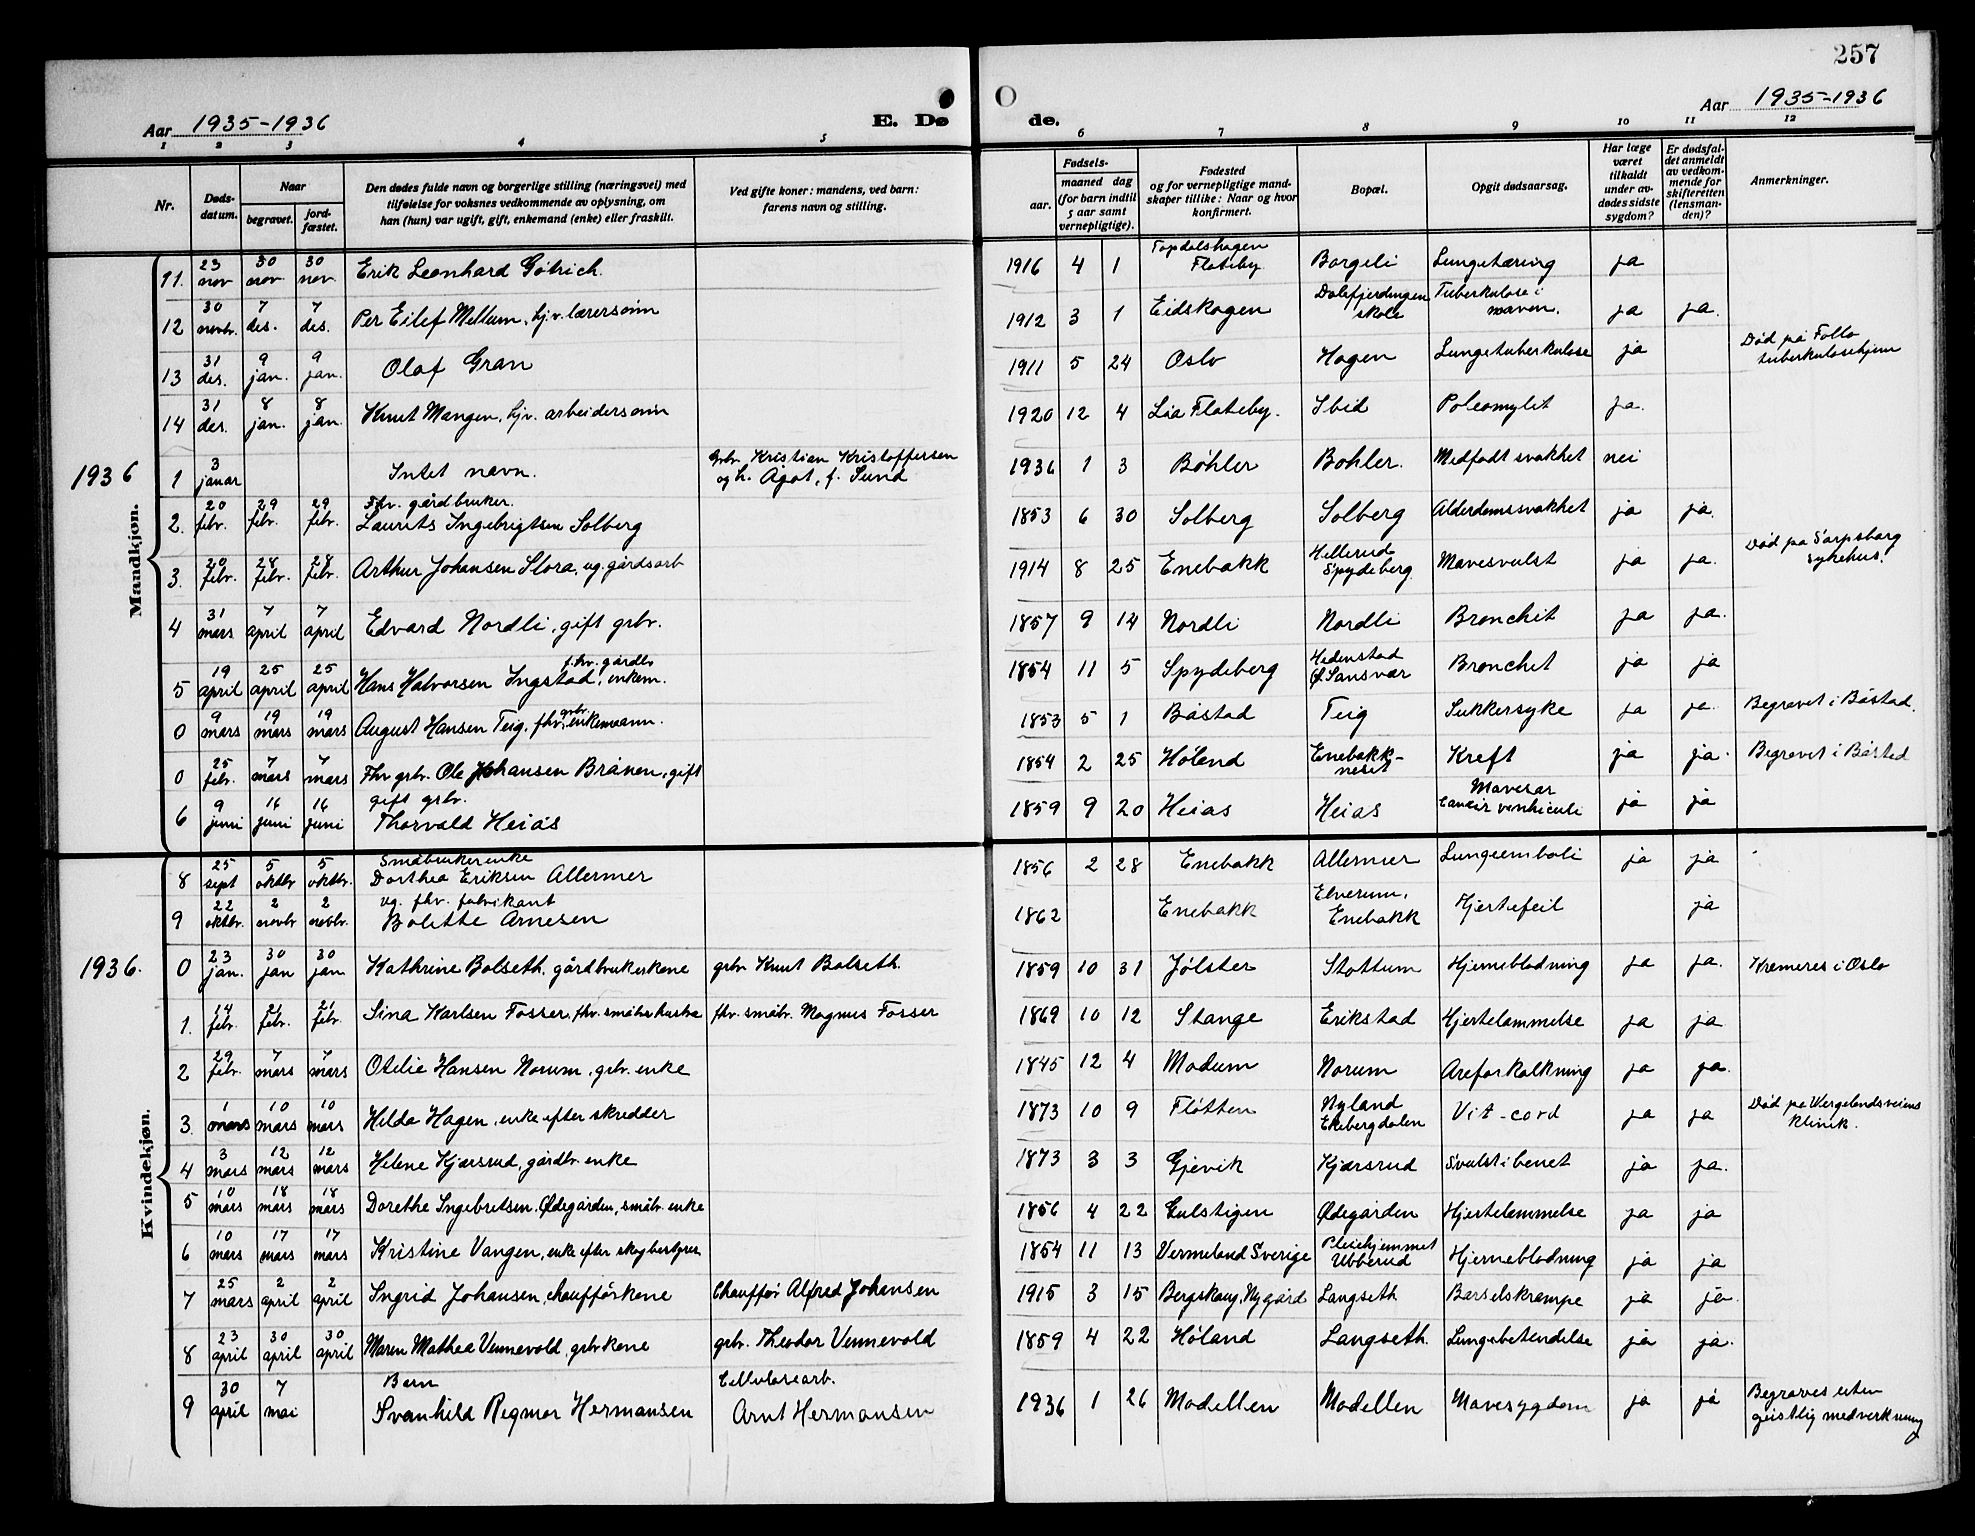 257
Aar 1935-1936 E. Dø
de. Aar 1935-1936
1 2 3 4 5 6 7 8 9 10 11 12
Nr.
Døds-
datum.
Naar
begravet.
jord-
fæstet.
Den dødes fulde navn og borgerlige stilling (næringsvei) med
tilføielse for voksnes vedkommende av oplysning, om
han (hun) var ugift, gift, enkemand (enke) eller fraskilt.
Ved gifte koner: mandens, ved barn:
farens navn og stilling.
Fødsels-
aar.
maaned dag
(for barn indtil
5 aar samt
vernepligtige).
Fødested
og for vernepligtige mand-
skaper tillike: Naar og hvor
konfirmert.
Bopæl.
Opgit dødsaarsag.
Har læge
været
tilkaldt
under av-
dødes sidste
sygdom?
Er dødsfal-
det anmeldt
av vedkom-
mende for
skifteretten
(lensman-
den)?
Anmerkninger.
Mandkjøn.
11. 23 nov 30 nov. 30 nov. Erik Leonhard Götrich. 1916 4 1 Topdalshagen Flateby. Borgeli Lungetæring ja
12 30 novbr. 7 des. 7 des. Per Eilef Mellum, hjv. lærersønn 1912 3 1 Eidskogen Dalefjerdingen skole Tuberkulose i maven. ja ja.
13 31 des. 9 jan. 9 jan. Olaf Gran 1911 5 24 Oslo Hagen Lungetuberkulose ja Død på Follo tuberkulosehjem
14 31 des. 8 jan. 8 jan. Knut Mangen, hjv. arbeidersønn 1920 12 4 Lia Flateby. Ibid Poleomylit ja.
1936 1 3 januar Intet navn. Grbr. Kristian Kristoffersen og h. Agot, f. Sund 1936 1 3 Bøhler Bøhler. Medfødt svakhet nei
2. 20 febr. 29 febr. 29 febr. Fhv. gårdbruker. Laurits Ingebrigtsen Solberg 1853 6 30 Solberg Solberg Alderdomssvakhet ja ja.
3. 20 febr. 28 febr. 28 febr. Arthur Johansen Slora, ug. gårdsarb 1914 8 25 Enebakk Hellerud Spydeberg Mavesvulst ja ja. Død på Sarpsborg sykehus.
4 31 mars 7 april 7 april Edvard Nordli, gift grbr. 1857 9 14 Nordli Nordli Bronchit ja ja.
5 19 april 25 april 25 april Hans Halvorsen Ingstad, fhv. gårdbr enkem. 1854 11 5 Spydeberg Hedenstad Ø. Sansvær Bronchit ja ja
0 9 mars 19 mars 19 mars August Hansen Teig, fhv. grbr. enkemann. 1853 5 1 Båstad Teig Sukkersyke ja ja. Begravet i Båstad.
0 25 febr. 7 mars 7 mars Fhv grbr. Ole Johansen Brånen, gift 1854 2 25 Høland Enebakk-neset Kreft ja ja. Begravet i Båstad
6 9 juni 16 juni 16 juni gift grbr. Thorvald Heiås 1859 9 20 Heias Heias Mavesar Cancer ventriculi ja ja
Kvindekjøn.
8 25 sept 5 oktbr 5 oktbr. Småbrukerenke Dorthea Eriksen Allermer 1856 2 28 Enebakk Allermer Lungeemboli ja ja
9 22 oktbr. 2 novbr 2 novbr. ug. fhv. fabrikant Bolette Arnesen 1862 Enebakk Elverum, Enebakk Hjertefeil ja
1936. 0 23 jan. 30 jan 30 jan Kathrine Bolseth, gårdbrukerkone grbr Knut Bolseth. 1859 10 31 Jølster Stottum Hjerneblødning ja ja. Kremeres i Oslo
1. 14 febr. 21 febr. 21 febr. Sina Karlsen Fosser, fhv. småbr.hustru fhv. småbr. Magnus Fosser 1869 10 12 Stange Erikstad Hjertelammelse ja ja
2 29 febr. 7 mars 7 mars Otelie Hansen Norum, grbr. enke 1845 12 4 Modum Norum Areforkalkning ja ja.
3. 1 mars 10 mars 10 mars Hilda Hagen, enke efter skredder 1873 10 9 Fløtten Nyland Ekebergdalen Vit-cord ja ja Død på Wergelandsveiens klinik.
4 3 mars 12 mars 12 mars Helene Kjærsrud, gårdbr. enke 1873 3 3 Gjøvik Kjærsrud Svulst i benet ja ja.
5 10 mars 18 mars 18 mars Dorethe Ingebretsen. Ødegården, småbr. enke 1856 4 22 Gulstigen Ødegården Hjertelammelse ja ja
6 10 mars 17 mars 17 mars Kristine Vangen, enke efter skogbestyrer 1854 11 13 Vermeland Sverige Pleiehjemmet Ubberud Hjerneblødning ja ja
7 25 mars 2 april 2 april Ingrid Johansen, chaufførkone Chauffør Alfred Johansen 1915 3 15 Bergskaug, Nygård Langseth Barselskrampe ja ja.
8 23 april 30 april 30 april Maren Mathea Vennevold, grbrkone grbr. Theodor Vennevold 1859 4 22 Høland Langseth. Lungebetendelse ja ja.
9 30 april 7 mai Barn Svanhild Regmor Hermansen Cellulosearb. Arnt Hermansen 1936 1 26 Modellen Modellen Mavesygdom ja ja Begraves uten geistlig medverkning